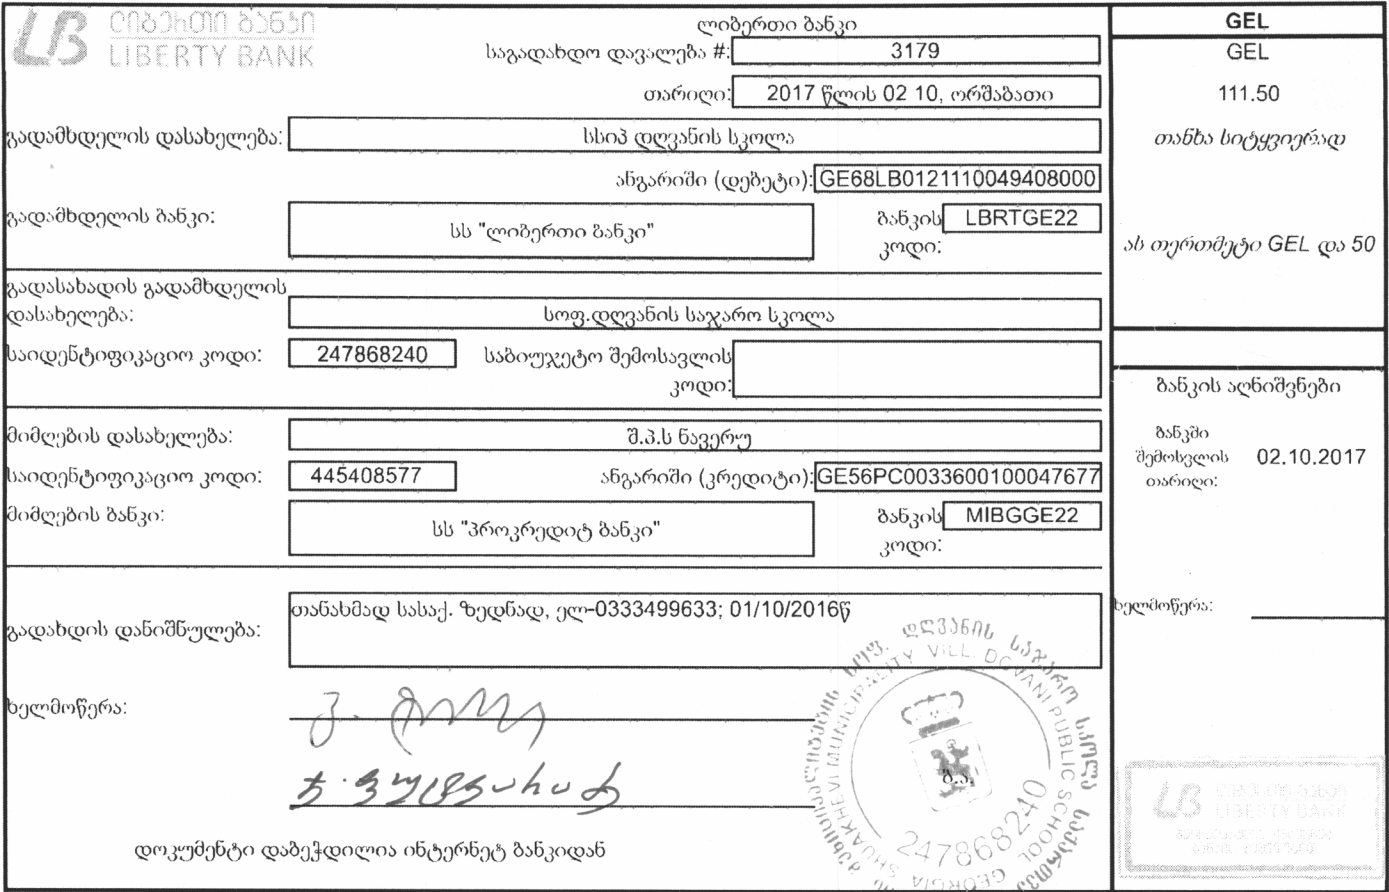 ლიბერთი ბანკი
LIBERTY BANK
ლიბერთი ბანკი
საგადახდო დავალება #: 3179
თარიღი: 2017 წლის 02 10, ორშაბათი
გადამხდელის დასახელება: სსიპ დღვანის სკოლა
ანგარიში (დებეტი): GE68LB0121110049408000
გადამხდელის ბანკი: სს "ლიბერთი ბანკი" ბანკის კოდი: LBRTGE22
გადასახადის გადამხდელის
დასახელება: სოფ.დღვანის საჯარო სკოლა
საიდენტიფიკაციო კოდი: 247868240 საბიუჯეტო შემოსავლის
კოდი:
მიმღების დასახელება: შ.პ.ს ნავერუ
საიდენტიფიკაციო კოდი: 445408577 ანგარიში (კრედიტი): GE56PC0033600100047677
მიმღების ბანკი: სს "პროკრედიტ ბანკი" ბანკის კოდი: MIBGGE22
გადახდის დანიშნულება: თანახმად სასაქ. ზედნად, ელ-0333499633; 01/10/2016წ
ხელმოწერა:
ბ.ა.
დოკუმენტი დაბეჭდილია ინტერნეტ ბანკიდან
GEL
GEL
111.50
თანხა სიტყვიერად
ას თერთმეტი GEL და 50
ბანკის აღნიშვნები
ბანკში
შემოსვლის 02.10.2017
თარიღი:
ხელმოწერა:
სოფ. დღვანის საჯარო სკოლა
MUNICIPALITY VILL. DGVANI PUBLIC SCHOOL
GEORGIA SHUAKHEVI
247868240
LIBERTY BANK